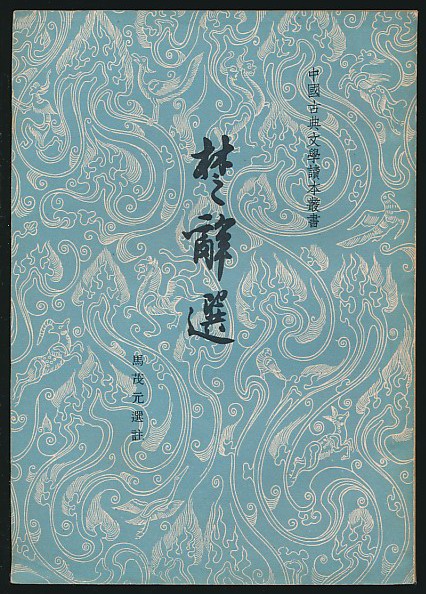 中國古典文學讀本叢書
楚辭選
馬茂元選註